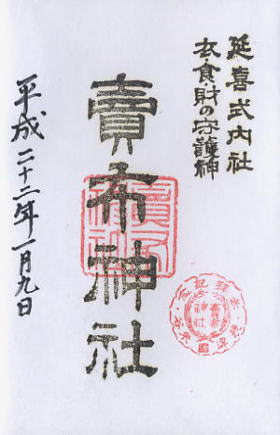 延喜式内社
衣食財の守護神
賣布神社
平成二十二年一月九日